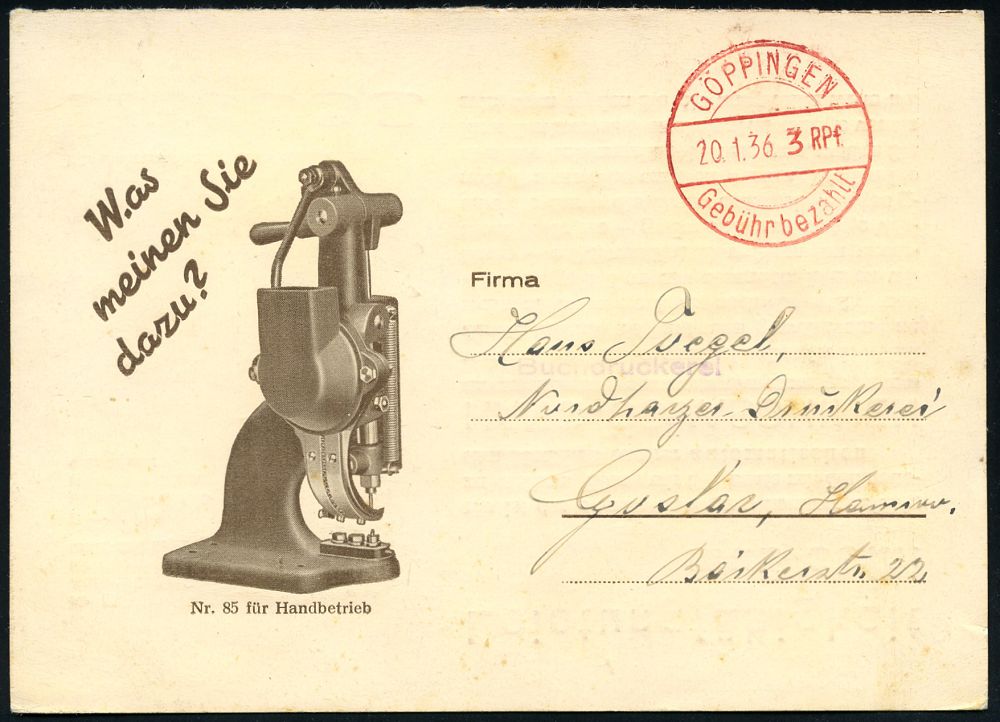 Was
meinen Sie
dazu?
GÖPPINGEN
20.1.36 3 RPf.
Gebühr bezahlt
Firma
Hans Voegel,
Buchdruckerei
Nordharzer Druckerei
Goslar, Hannov.
Bäckerstr. 22
Nr. 85 für Handbetrieb